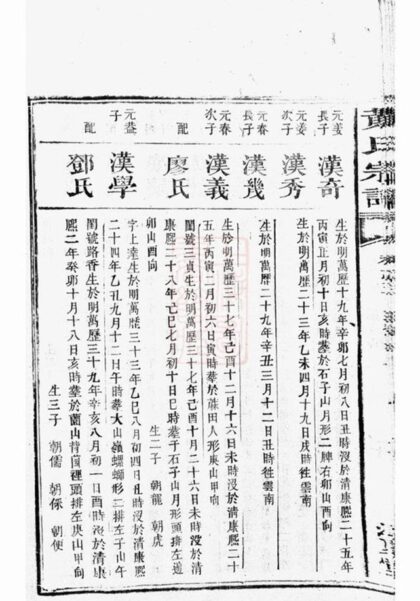 黃氏宗譜
元姜長子
漢奇
生於明萬歷十九年辛卯七月初八日丑時沒於清康熙二十五年
丙寅正月初十日亥時塟於石子山月形二牌右卯山酉向
元姜次子
漢秀
生於明萬歷二十三年乙未四月十九日戌時徃雲南
元春長子
漢幾
生於明萬歷二十九年辛丑三月十二日丑時徃雲南
元春次子
漢義
生於明萬歷三十七年己酉十二月十六日未時沒於清康熙二十
五年丙寅二月初六日寅時塟於莊田人形庚山甲向
配
廖氏
閨號三貞生於明萬歷三十七年己酉十月二十六日未時沒於清
康熙二十八年己巳七月初十日巳時塟于石子山月形頭排左邊
卯山酉向
生二子 朝龍 朝虎
元益子
漢學
字上達生於明萬歷三十三年乙巳八月初四日丑時沒於清康熙
二十四年乙丑九月十二日午時塟大山嶺螺螄形二排左子山午
配
鄧氏
閨號路香生於明萬歷三十九年辛亥八月初一日酉時沒於清康
熙二年癸卯十月十八日亥時塟於蘭山背園裡頭排左庚山甲向
生三子 朝儒 朝保 朝使